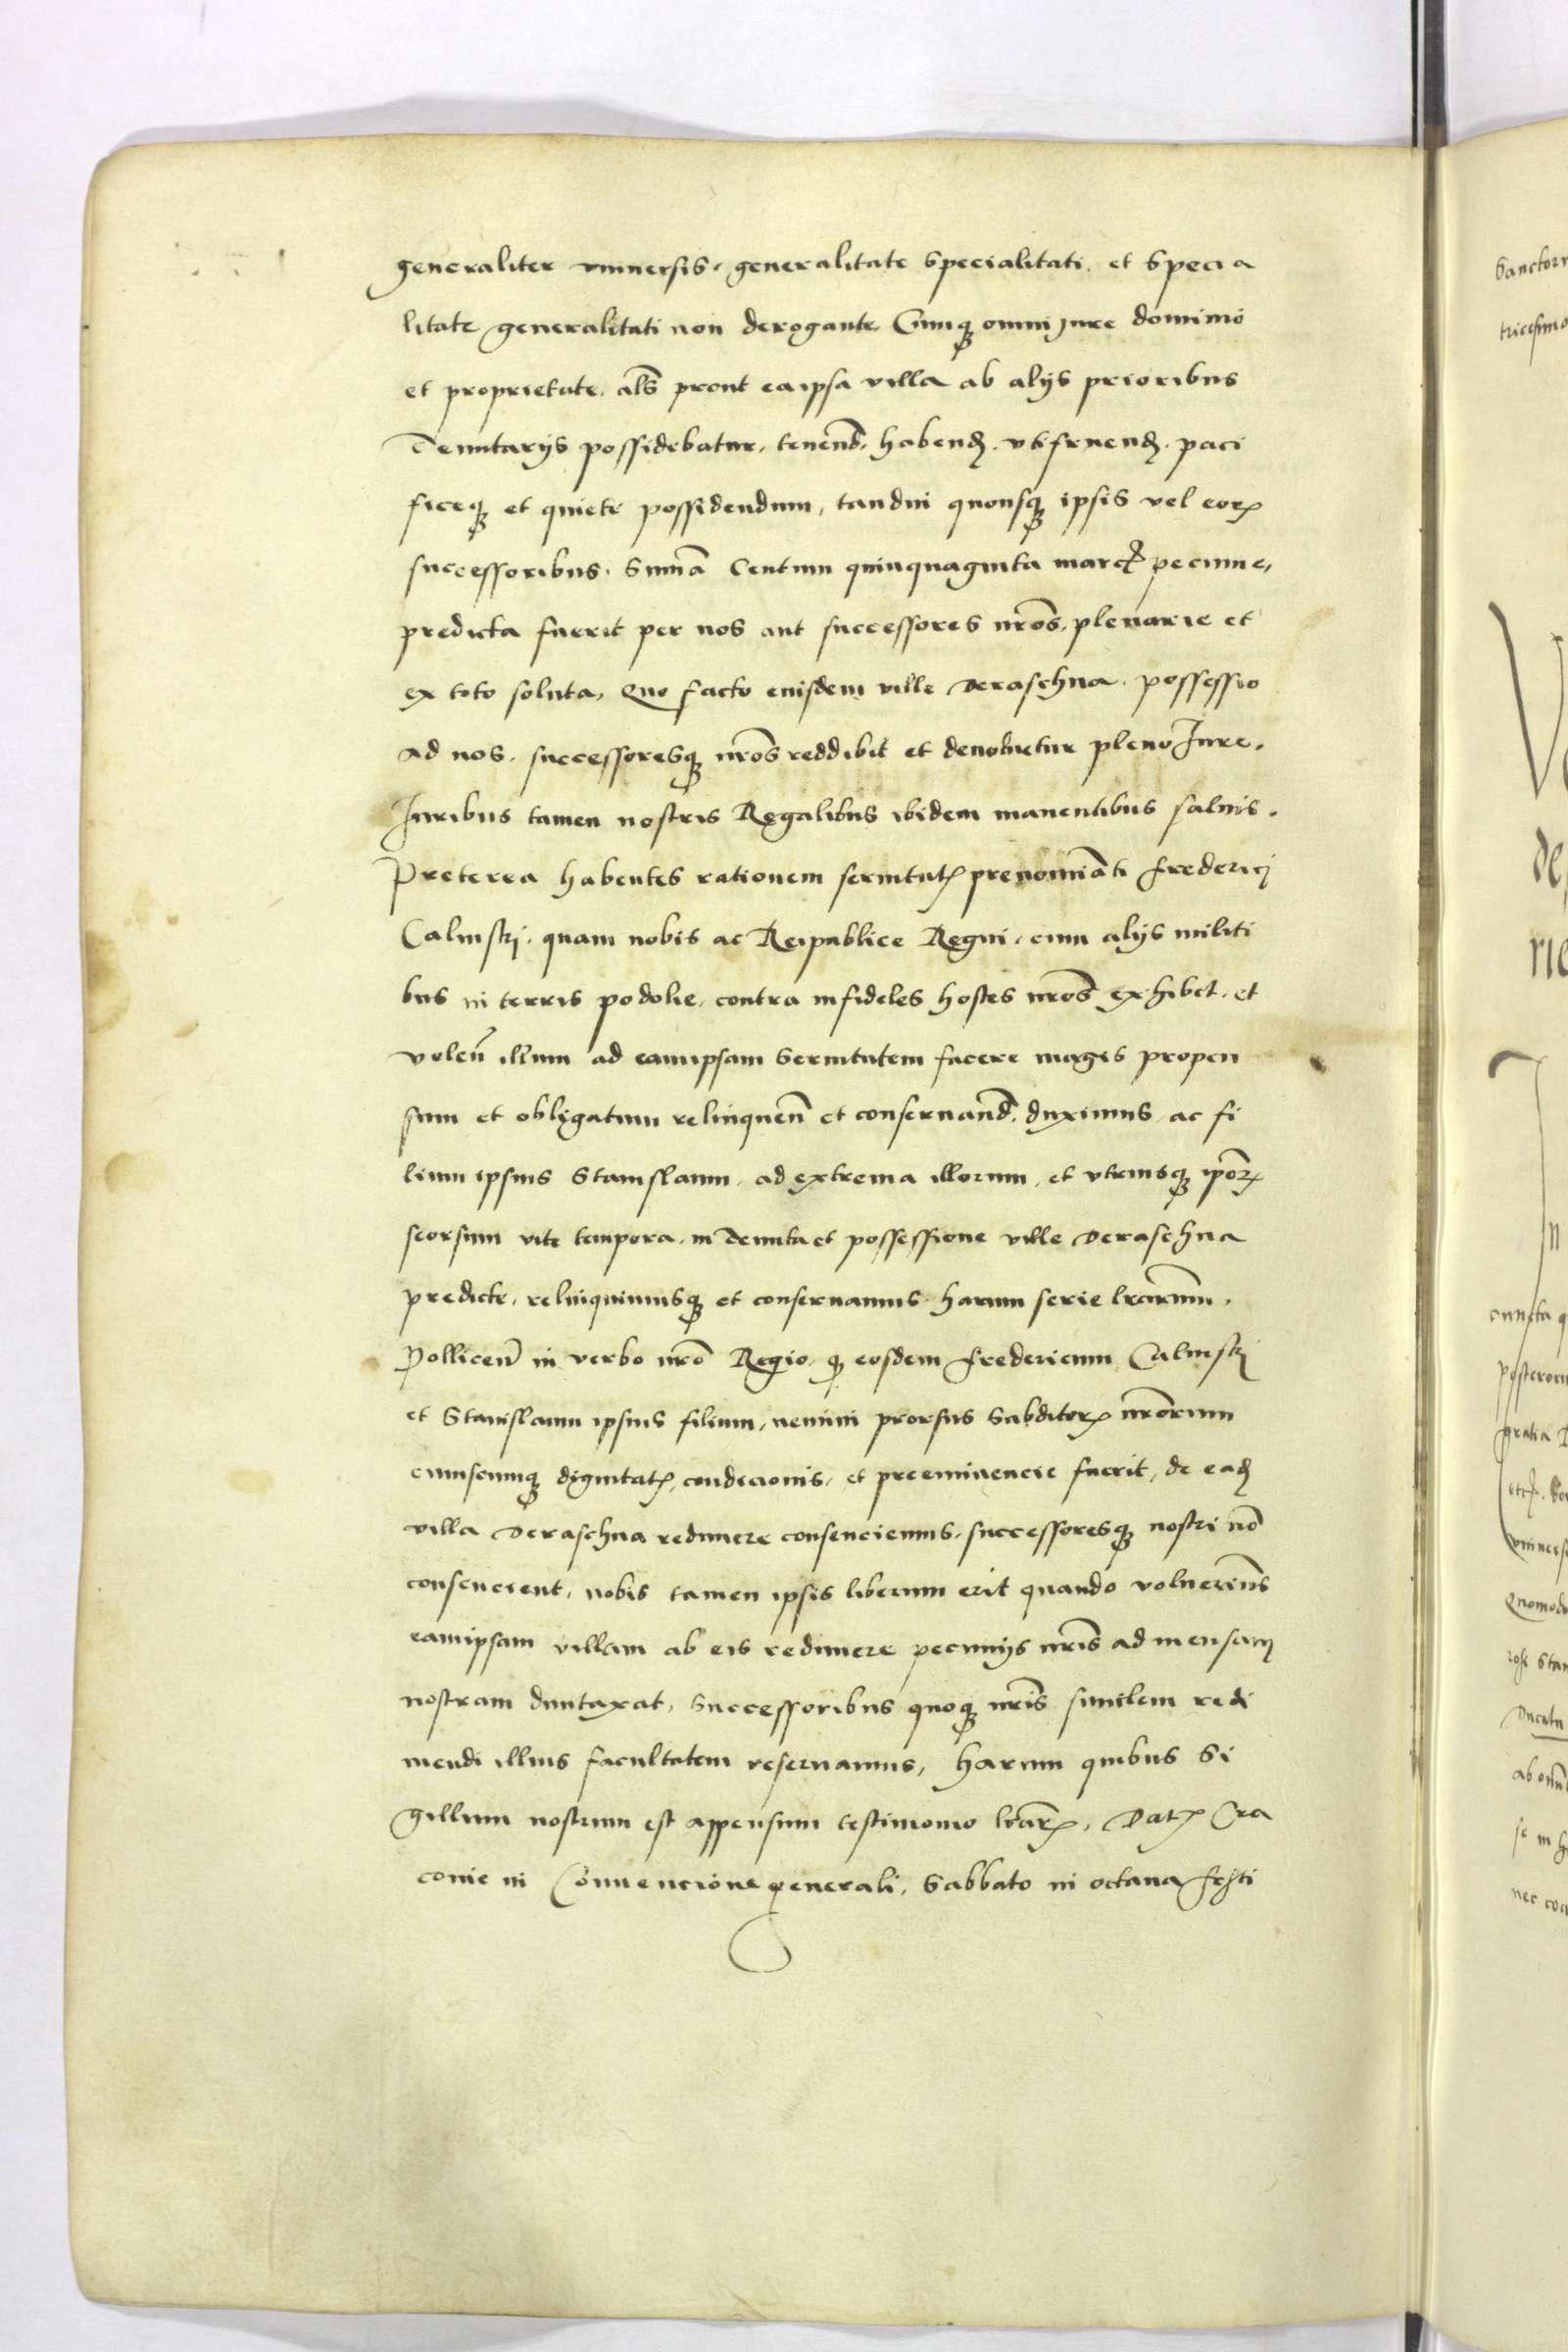 generaliter vniuersis, generalitate specialitati, et specia
litate generalitati non derogante. Cumq̨ omni jure dominio
et proprietate, als̄ prout eaipsa villa ab alijs prioribus
Tenutarijs possidebatur, tenend̄, habend̨, vtifruend̨, paci
ficeq̨ et quiete possidendum, tamdiu quousq̨ ipsis vel eorꝝ
successoribus, Sum̄a Centum quinquaginta marcꝝ pecunie,
predicta fuerit per nos aut successores nr̄os, plenarie et
ex toto soluta, Quo facto eiusdem ville Deraschna, possessio
ad nos, successoresq̨ nr̄os reddibit et deuoluetur pleno Jure.
Juribus tamen nostris Regalibus ibidem manentibus saluis.
Preterea habentes rationem seruitutꝭ prenomīati Frederici
Calinskj, quam nobis ac Reipublice Regni, cum alijs militi
bus in terris podolie, contra infideles hostes nr̄os exhibet, et
volen̄ illum ad eamipsam Seruitutem facere magis propen
sum et obligatum relinquen̄ et conseruand̄, duximus, ac fi
lium ipsius Stanislaum, ad extrema illorum, et vtriusq̨ ip̄orꝝ
seorsum vite tempora, in Tenuta et possessione ville Deraschna
predicte, relinquimusq̨ et conseruamus harum serie lr̄arum.
Pollicen̄ in verbo nr̄o Regio, q̨ eosdem Fredericum Calinskj
et Stanislaum ipsius filium, nemini prorsus Subditorꝝ nr̄orum
cuiuscumq̨ dignitatꝭ, condicionis, et preeminencie fuerit, de ead̨
villa Deraschna redimere consenciemus, successoresq̨ nostri nō
consencient, nobis tamen ipsis liberum erit quando voluerim̄s
eamipsam villam ab eis redimere pecunijs nr̄is ad mensam
nostram duntaxat, Successoribus quoq̨ nr̄is similem redi
mendi illius facultatem reseruamus, harum quibus Si
gillum nostrum est appensum testimonio lr̄arꝝ, Datꝭ Cra
couie in Conuencione generali, Sabbato in octaua festi
Sanctor
tricesimo
de
rie
In
cuncta q
posterorum
gratia
vniuers
Quomodo
Ducatu
ab om̄
se in h